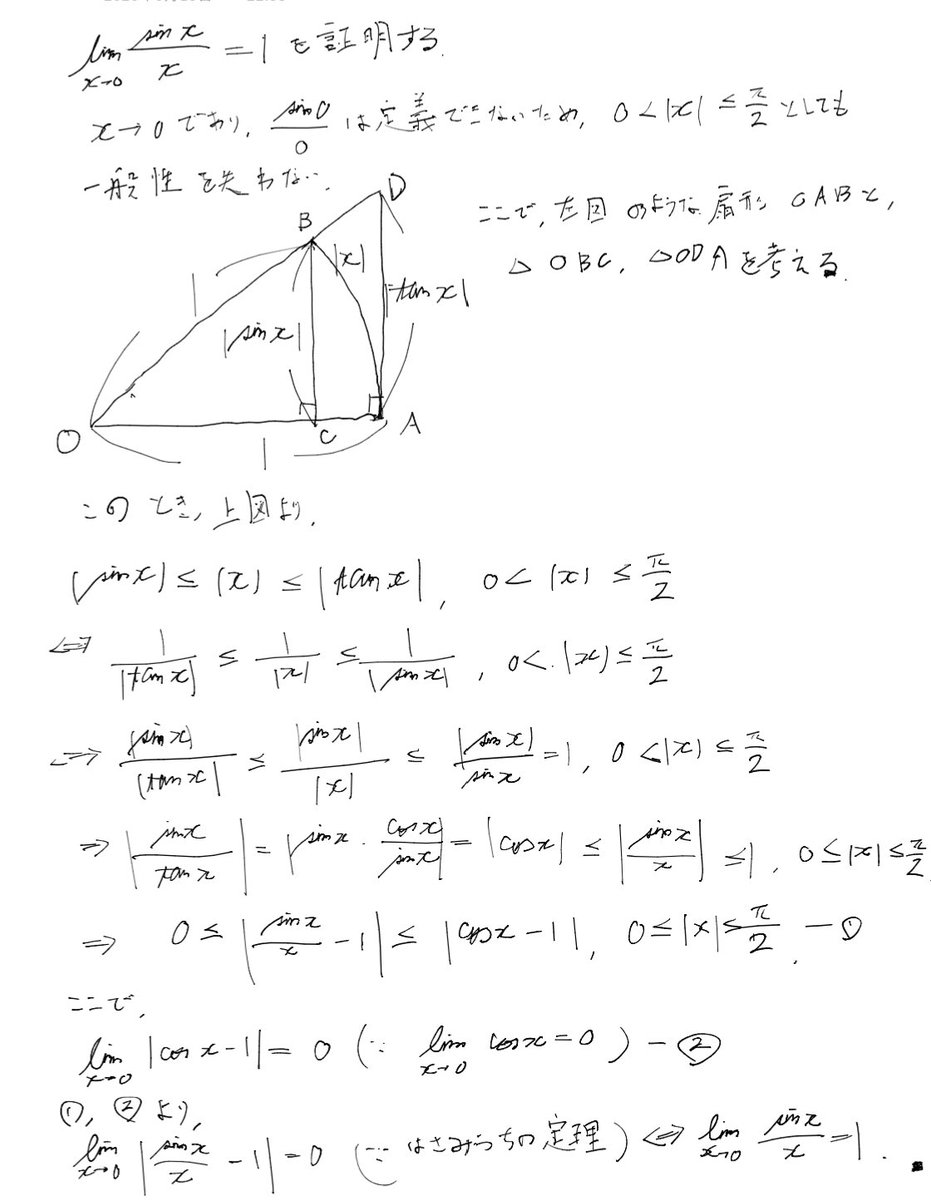 lim_{x→0} sin x / x = 1 を証明する.
x→0 であり, sin 0 / 0 は定義できないため, 0 < |x| ≤ π/2 としても
一般性を失わない.
ここで, 左図 のような 扇形 OABと,
△OBC, △ODA を考える.
D
B
|x|
1
|tan x|
|sin x|
O
C
A
1
このとき, 上図より,
|sin x| ≤ |x| ≤ |tan x|, 0 < |x| ≤ π/2
⇔ 1/|tan x| ≤ 1/|x| ≤ 1/|sin x|, 0 < |x| ≤ π/2
⇔ |sin x|/|tan x| ≤ |sin x|/|x| ≤ |sin x|/sin x = 1, 0 < |x| ≤ π/2
⇒ |sin x / tan x| = |sin x · cos x / sin x| = |cos x| ≤ |sin x / x| ≤ 1, 0 ≤ |x| ≤ π/2
⇒ 0 ≤ |sin x / x - 1| ≤ |cos x - 1|, 0 ≤ |x| ≤ π/2. ー①
ここで,
lim_{x→0} |cos x - 1| = 0 (∵ lim_{x→0} cos x = 0) ー②
①, ② より,
lim_{x→0} |sin x / x - 1| = 0 (∵ はさみうちの定理) ⇔ lim_{x→0} sin x / x = 1.